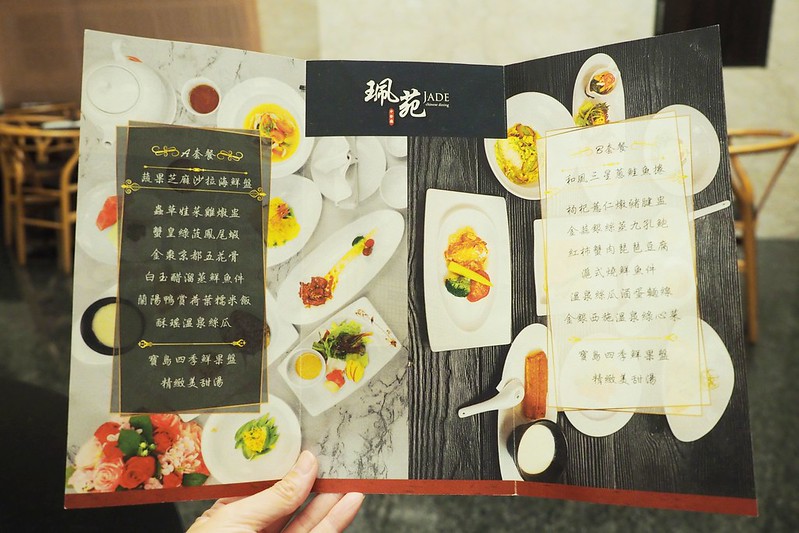 珮苑
JADE
chinese dining
A套餐
蔬果芝麻沙拉海鮮盤
蟲草娃菜雞燉盅
蟹皇絲茂鳳尾蝦
金棗京都五花骨
白玉醋溜蒸鮮魚件
蘭陽鴨賞荷葉糯米飯
酥瑤溫泉絲瓜
寶島四季鮮果盤
精緻美甜湯
B套餐
和風三星蔥鮭魚捲
枸杞薏仁燉豬腱盅
金菇銀絲蒸九孔鮑
紅柿蟹肉琵琶豆腐
溫泉絲瓜滷蛋麵線
金銀西施溫泉綠心菜
寶島四季鮮果盤
精緻美甜湯